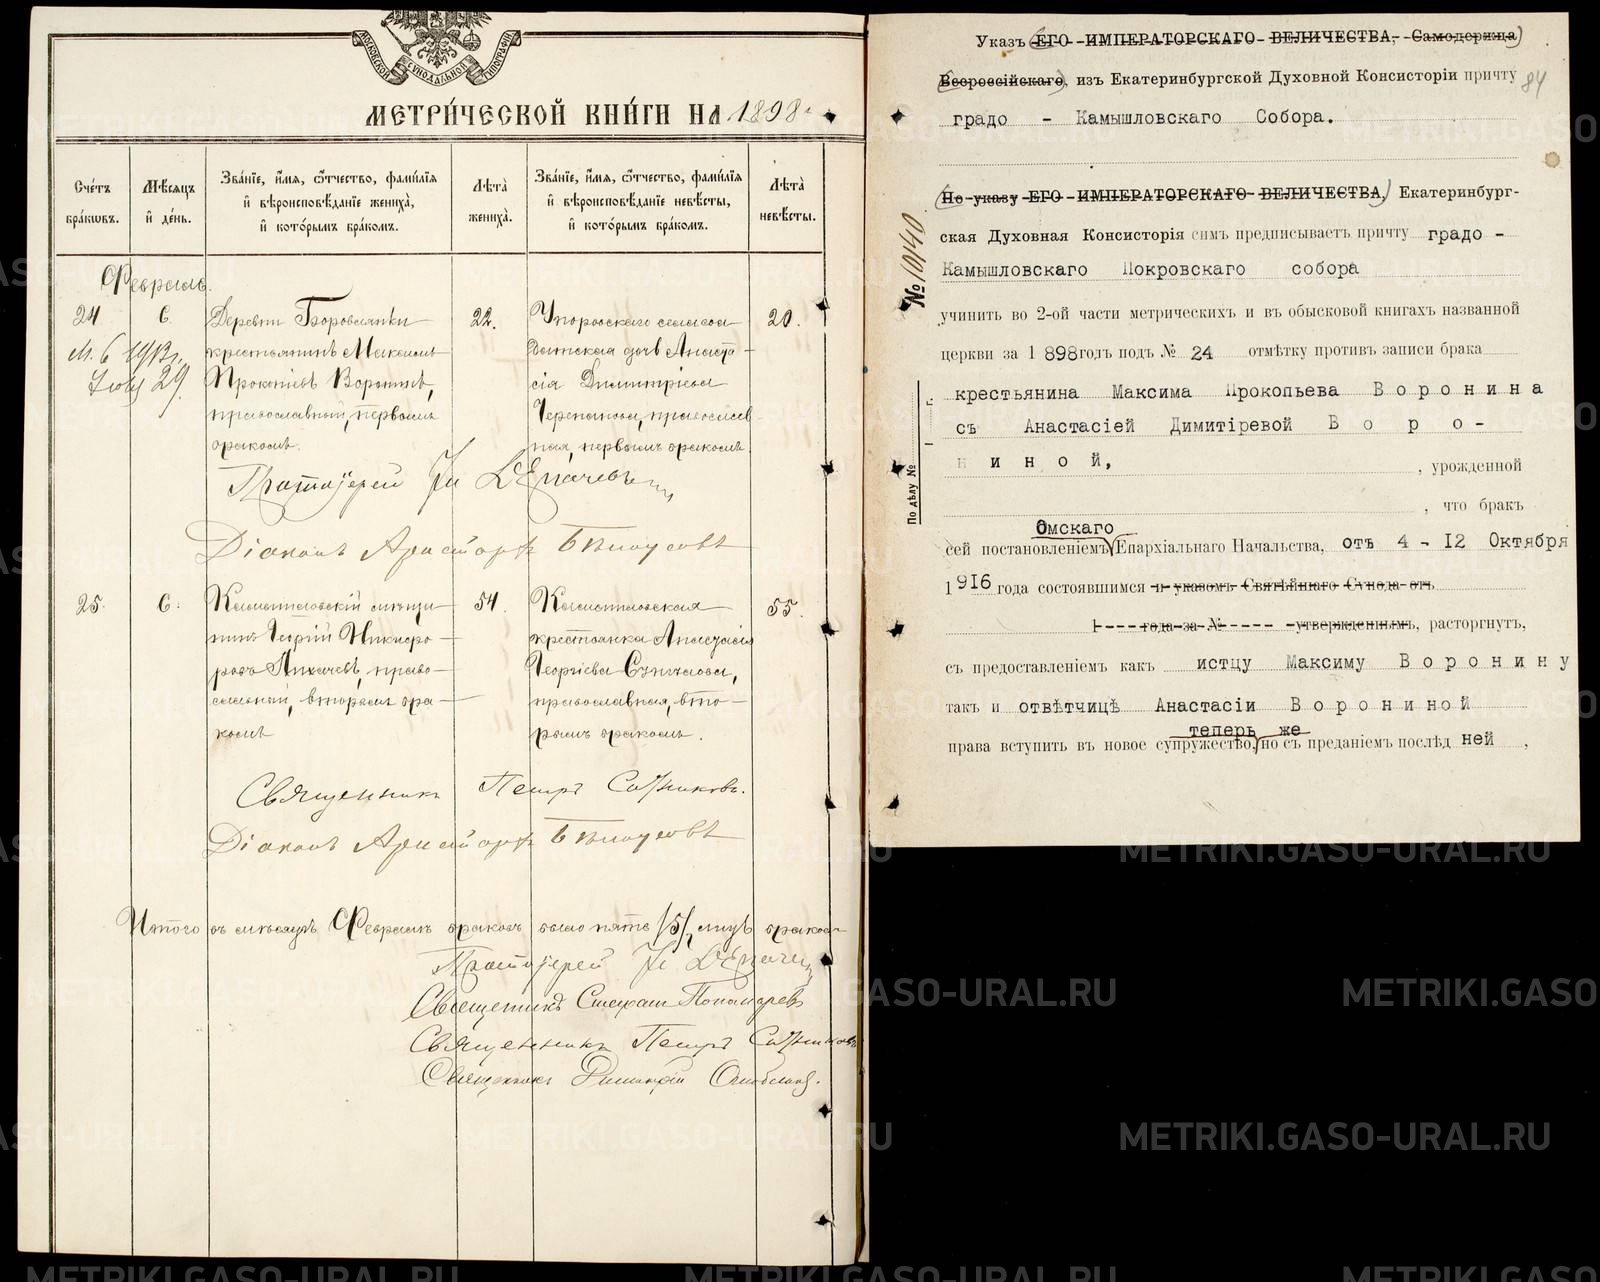 МОСКОВСКОЙ СѴНОДАЛЬНОЙ ТИПОГРАФІИ
МЕТРИ́ЧЕСКОЙ КНИ́ГИ НА 1898
Сче́тъ бра́ковъ.
Мѣ́сяцъ и҆ де́нь.
Зва́нїе, и҆́мѧ, ѻ҆́тчество, фамѝлїѧ и҆ вѣроисповѣ́данїе жениха̀, и҆ кото́рымъ бра́комъ.
Лѣта̀ жениха̀.
Зва́нїе, и҆́мѧ, ѻ҆́тчество, фамѝлїѧ и҆ вѣроисповѣ́данїе невѣ́сты, и҆ кото́рымъ бра́комъ.
Лѣта̀ невѣ́сты.
Февраль.
24
6.
Деревни Боровлянки
крестьянинъ Максимъ
Прокопіевъ Воронинъ,
православный, первымъ
бракомъ.
22.
Упоровскаго
дочь Анаста-
сія Димитріева
Черепанова, православ-
ная, первымъ бракомъ.
20.
29
Протоіерей
Діаконъ
25.
6.
Камышловскій мѣща-
нинъ Георгій Никифо-
ровъ Лихачевъ, право-
славный, вторымъ бра-
комъ
54.
Камышловская
крестьянка Анастасія
Георгіева
православная, вто-
рымъ бракомъ.
55.
Священникъ Петръ
Діаконъ
Итого въ мѣсяцѣ Февралѣ браковъ было пять /5/
Протоіерей
Священникъ Стефанъ Пономаревъ
Священникъ Петръ
Священникъ Димитрій
84
Указъ (ЕГО ИМПЕРАТОРСКАГО ВЕЛИЧЕСТВА, Самодержца
Всероссійскаго), изъ Екатеринбургской Духовной Консисторіи причту
градо - Камышловскаго Собора.
(По указу ЕГО ИМПЕРАТОРСКАГО ВЕЛИЧЕСТВА,) Екатеринбург-
ская Духовная Консисторія симъ предписываетъ причту градо -
Камышловскаго Покровскаго собора
учинить во 2-ой части метрическихъ и въ обысковой книгахъ названной
церкви за 1898годъ подъ № 24 отмѣтку противъ записи брака
крестьянина Максима Прокопьева Воронина
съ Анастасіей Димитіревой Воро-
ниной, , урожденной
, что бракъ
Омскаго
сей постановленіемъ Епархіальнаго Начальства, отъ 4 - 12 Октября
1916 года состоявшимся и указомъ Святѣйшаго Сѵнода отъ
1 года за № утвержденнымъ, расторгнутъ,
съ предоставленіемъ какъ истцу Максиму Воронину
такъ и отвѣтчицѣ Анастасіи Ворониной
теперь же
права вступить въ новое супружество, но съ преданіемъ послѣд ней ,
№ 10140
По дѣлу №
METRIKI.GASO-URAL.RU